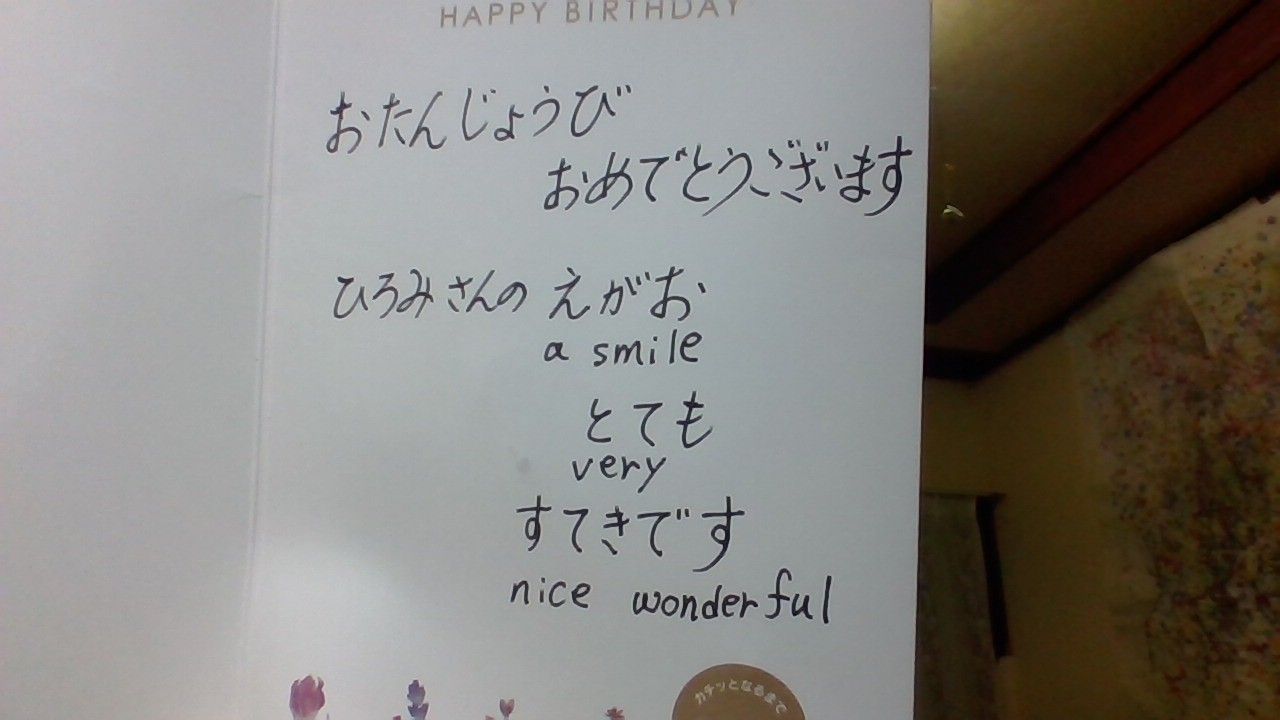 HAPPY BIRTHDAY
おたんじょうび
おめでとうございます
ひろみさんの えがお
a smile
とても
very
すてきです
nice wonderful
カチッとなるまで